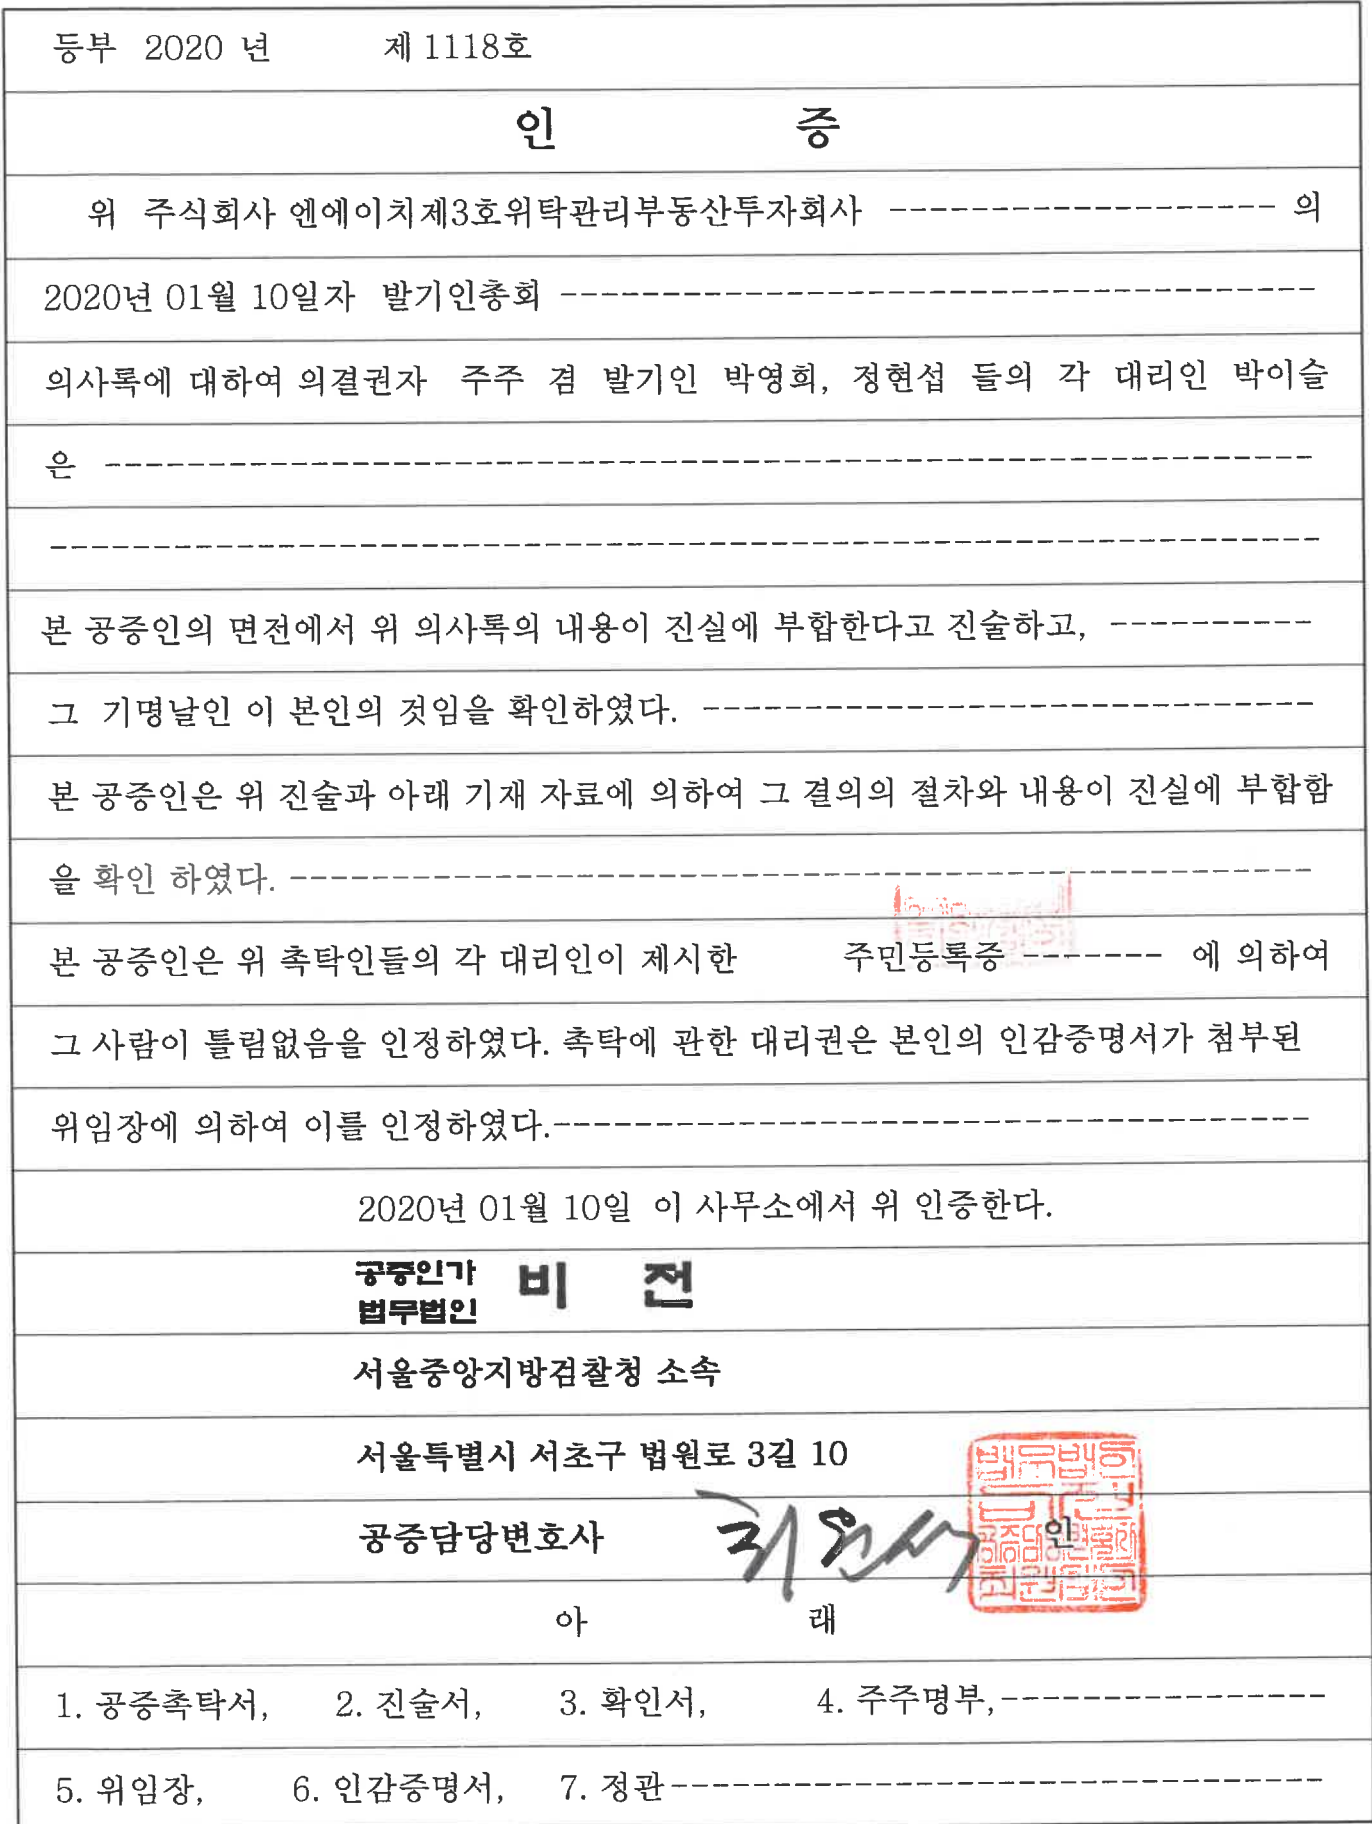 등부 2020 년 제 1118호
인 증
위 주식회사 엔에이치제3호위탁관리부동산투자회사 ------------------- 의
2020년 01월 10일자 발기인총회 -------------------------------------
의사록에 대하여 의결권자 주주 겸 발기인 박영희, 정현섭 들의 각 대리인 박이슬
은 -----------------------------------------------------------
--------------------------------------------------------------
본 공증인의 면전에서 위 의사록의 내용이 진실에 부합한다고 진술하고, ----------
그 기명날인 이 본인의 것임을 확인하였다. ------------------------------
본 공증인은 위 진술과 아래 기재 자료에 의하여 그 결의의 절차와 내용이 진실에 부합함
을 확인 하였다. --------------------------------------------------
본 공증인은 위 촉탁인들의 각 대리인이 제시한 주민등록증 ------- 에 의하여
그 사람이 틀림없음을 인정하였다. 촉탁에 관한 대리권은 본인의 인감증명서가 첨부된
위임장에 의하여 이를 인정하였다.-------------------------------------
2020년 01월 10일 이 사무소에서 위 인증한다.
공증인가 법무법인 비 전
서울중앙지방검찰청 소속
서울특별시 서초구 법원로 3길 10
공증담당변호사 인
아 래
1. 공증촉탁서, 2. 진술서, 3. 확인서, 4. 주주명부,----------------
5. 위임장, 6. 인감증명서, 7. 정관--------------------------------